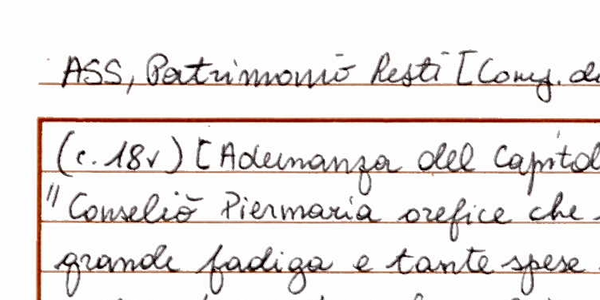 ASS, Patrimonio Resti [Cong. de
(c. 18v) [Adunanza del Capitol
"Conseliò Piermaria orefice che
grande fadiga e tante spese